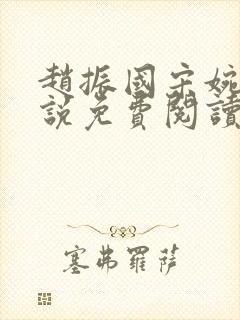 趙振國宋婉
說免費閱讀
塞弗羅薩